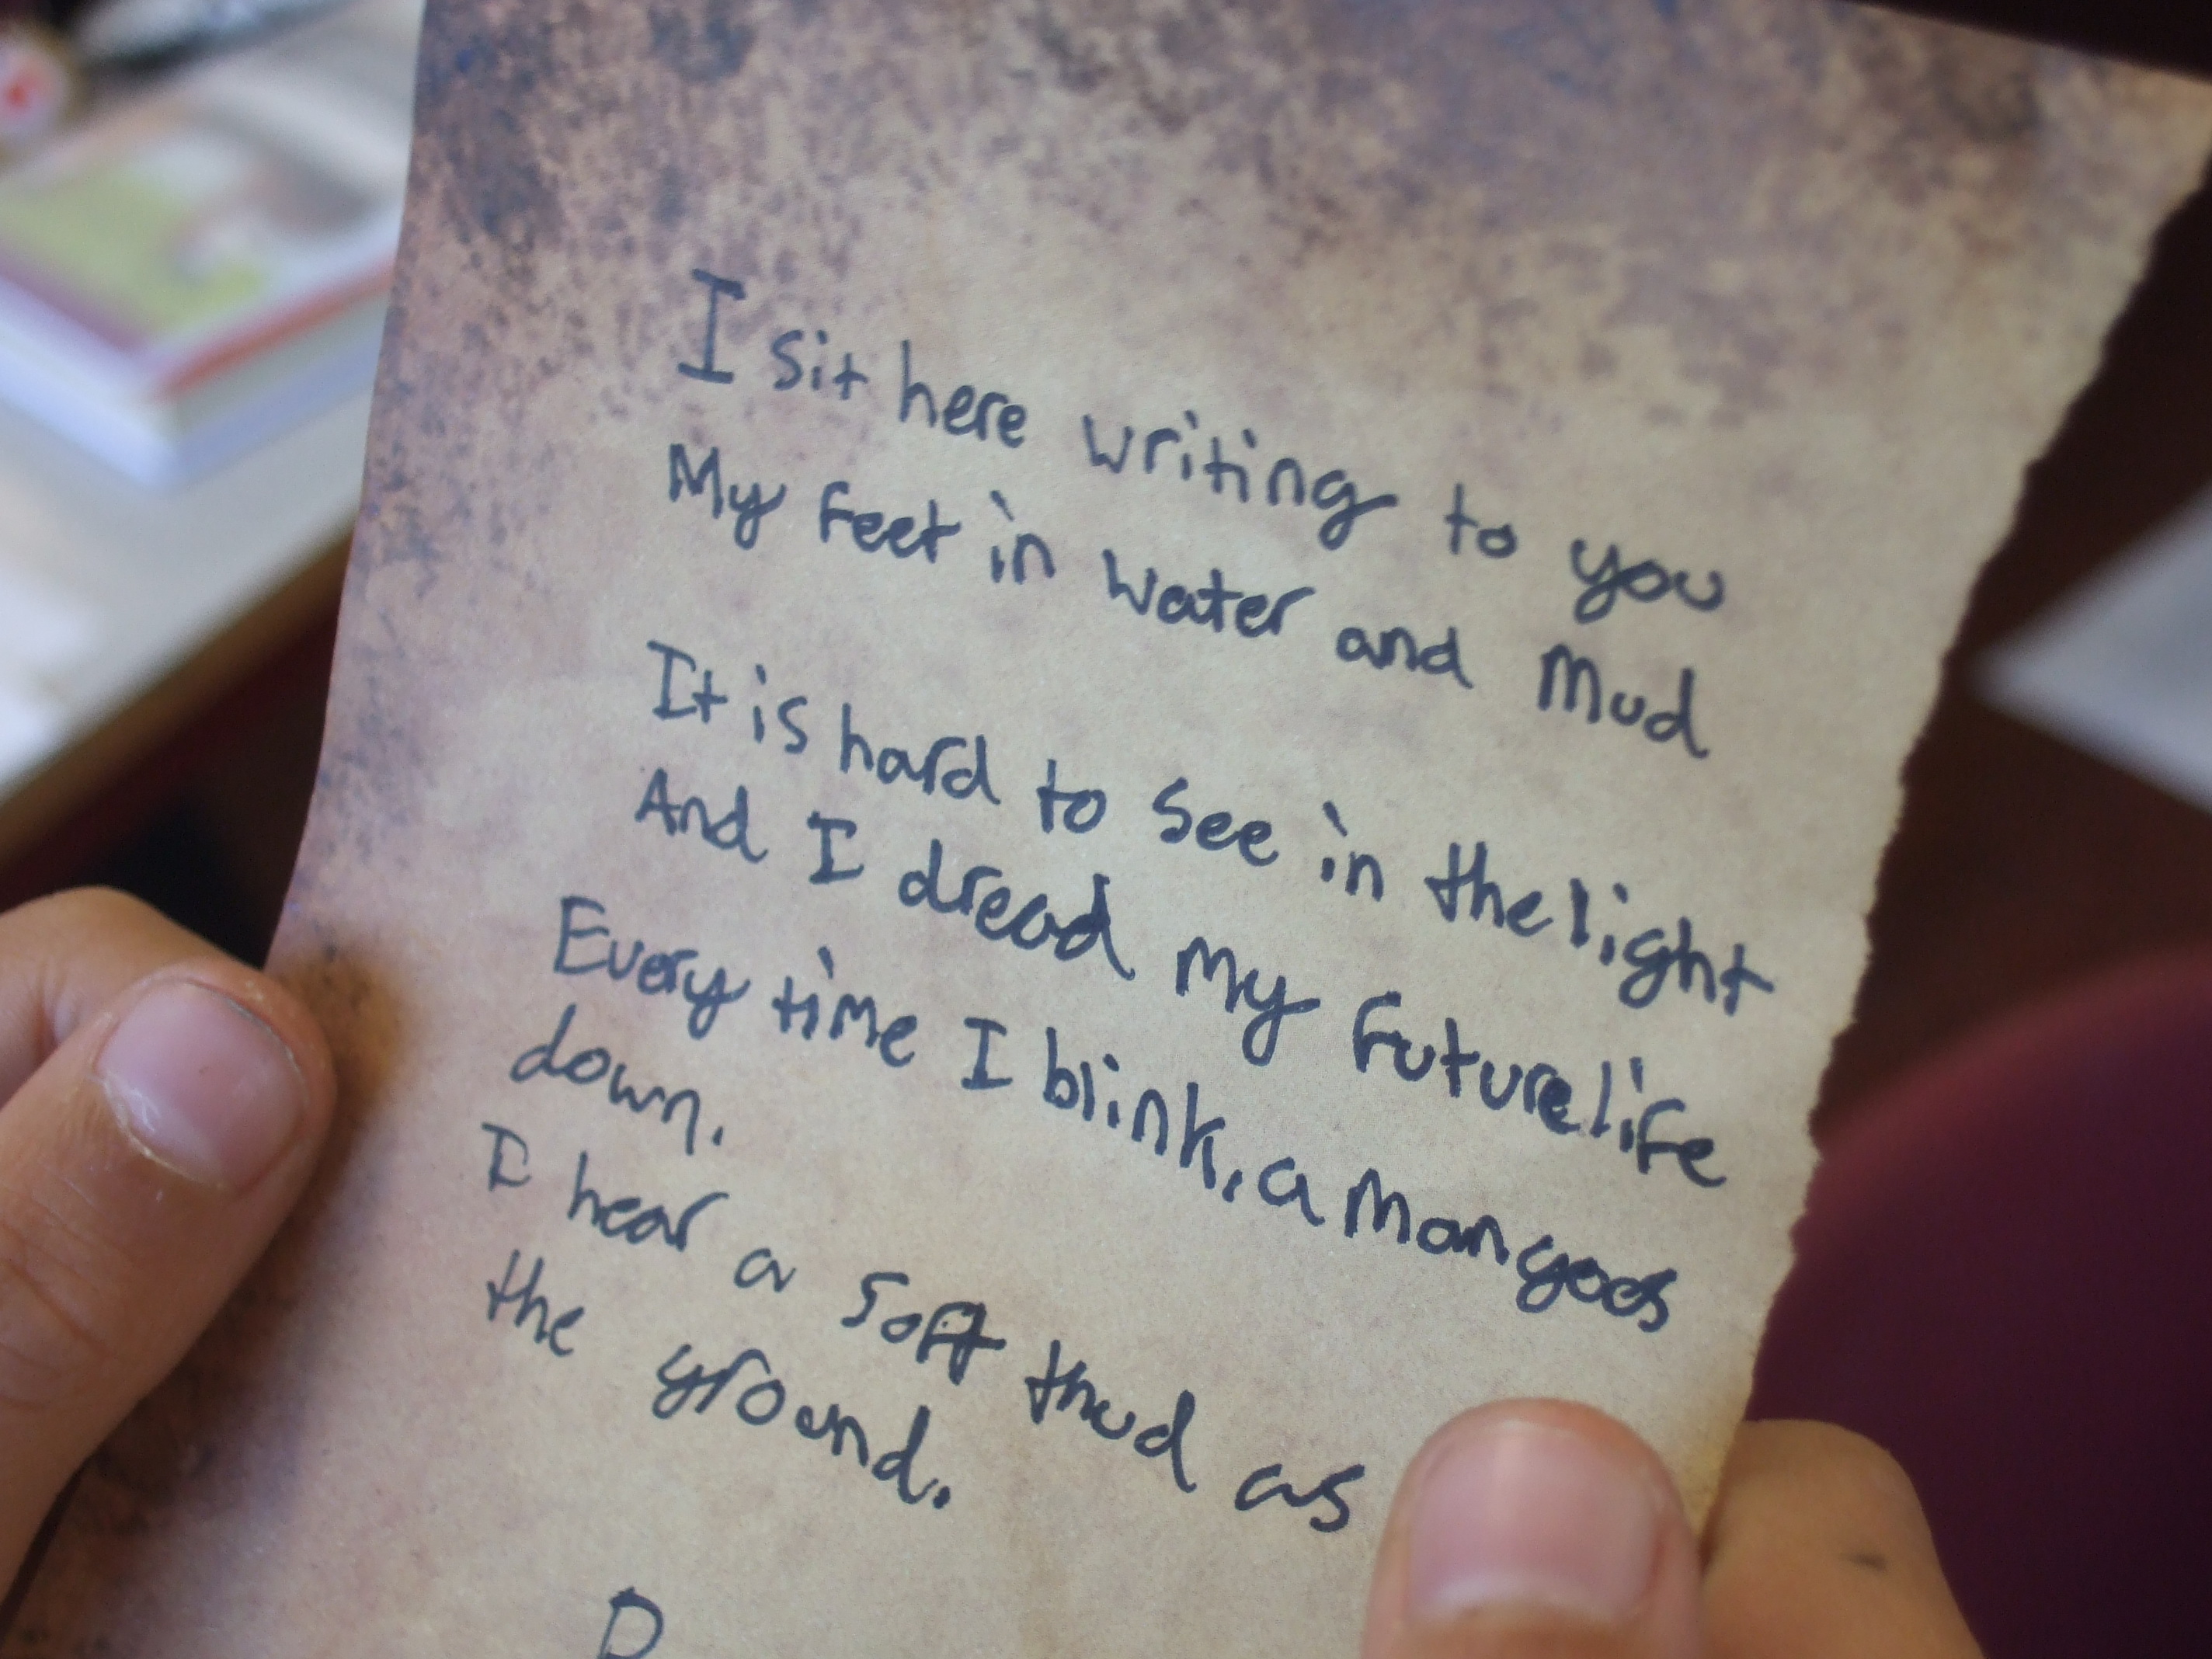 I sit here writing to you
My feet in water and Mud
It is hard to see in the light
And I dread my future life
Every time I blink, a man goes
down.
I hear a soft thud as
the ground.
D